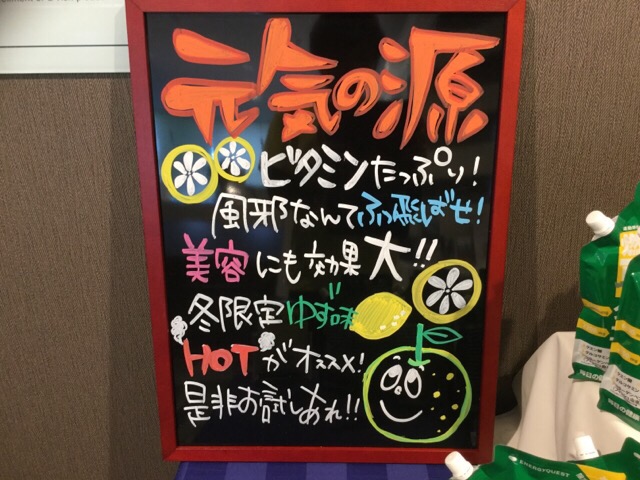 元気の源
ビタミンたっぷり!
風邪なんてふっ飛ばせ!
美容にも効果大!!
冬限定ゆず味
HOTがオススメ!
是非お試しあれ!!
ENERGYQUEST